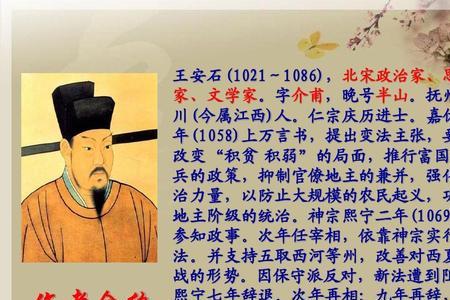 王安石(1021～1086)，北宋政治家、思
家、文学家。字介甫，晚号半山。抚州
川(今属江西)人。仁宗庆历进士。嘉佑
年(1058)上万言书，提出变法主张，要
改变“积贫 积弱”的局面，推行富国
兵的政策，抑制官僚地主的兼并，强化
治力量，以防止大规模的农民起义，巩
地主阶级的统治。神宗熙宁二年(1069
参知政事。次年任宰相，依靠神宗实行
法。并支持五取西河等州，改善对西夏
战的形势。因保守派反对，新法遭到阻
熙宁七年辞退。次年再相；九年再辞，